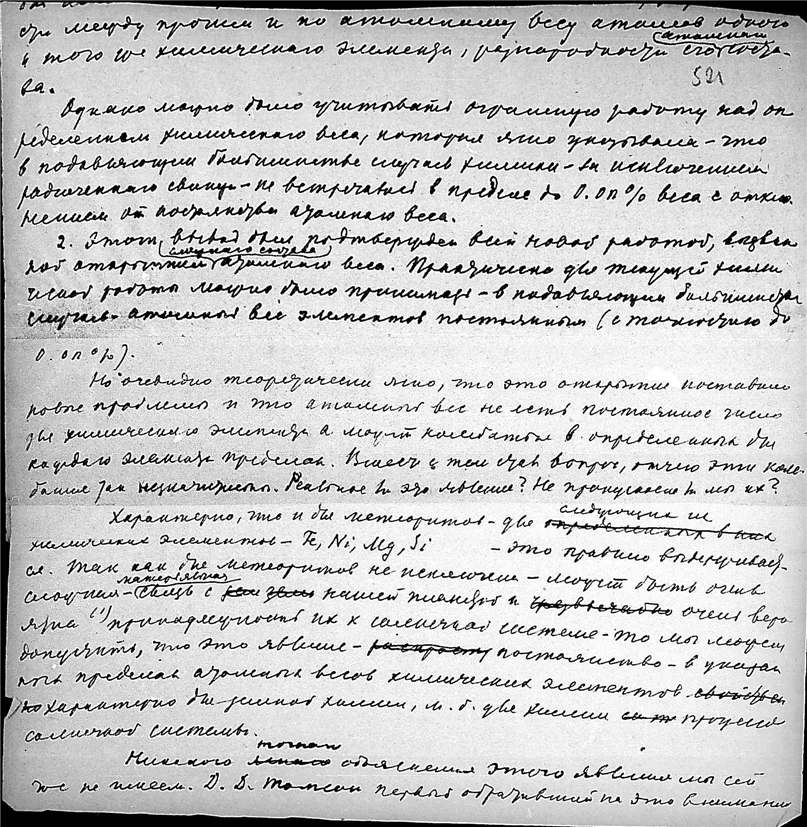 сти между прочим и по атомному весу атомов одного
и того же химического элемента, разнородности его атомами соста-
ва.
521
Однако можно было учитывать огромную работу над оп
ределением химического веса, которая ясно указывала – что
в подавляющем большинстве случаев химики – за исключением
радиогенного свинца – не встречались в пределе до 0.0n% веса с откло
нением от постоянства атомного веса.
2. Этот вывод был подтвержден всей новой работой, вызван
ной открытием сложного состава атомного веса. Практически для текущей хими
ческой работы можно было принимать – в подавляющем большинстве
случаев – атомный вес элементов постоянным (с точностью до
0.0n%).
Но очевидно теоретически ясно, что это открытие поставило
новые проблемы и что атомный вес не есть постоянное число
для химического элемента а может колебаться в определенных для
каждого элемента пределах. Вместе с тем встал вопрос, отчего эти коле-
бания так незначительны. Реальное ли это явление? Не пропускаем ли мы их?
Характерно, что и для метеоритов – для следующих их
химических элементов – Fe, Ni, Mg, Si – это правило выдерживает-
ся. Так как для метеоритов не исключена – может быть очень
сложная – материальная связь с нашей планетой и очень веро
ятна (1) принадлежность их к солнечной системе – то мы можем
допустить, что это явление – постоянство – в указан
ных пределах атомных весов химических элементов
характерно для земной химии, м.б. для химии процессов
солнечной системы.
Никакого точного объяснения этого явления мы сей
час не имеем. Д. Д. Томсон первый обративший на это внимание